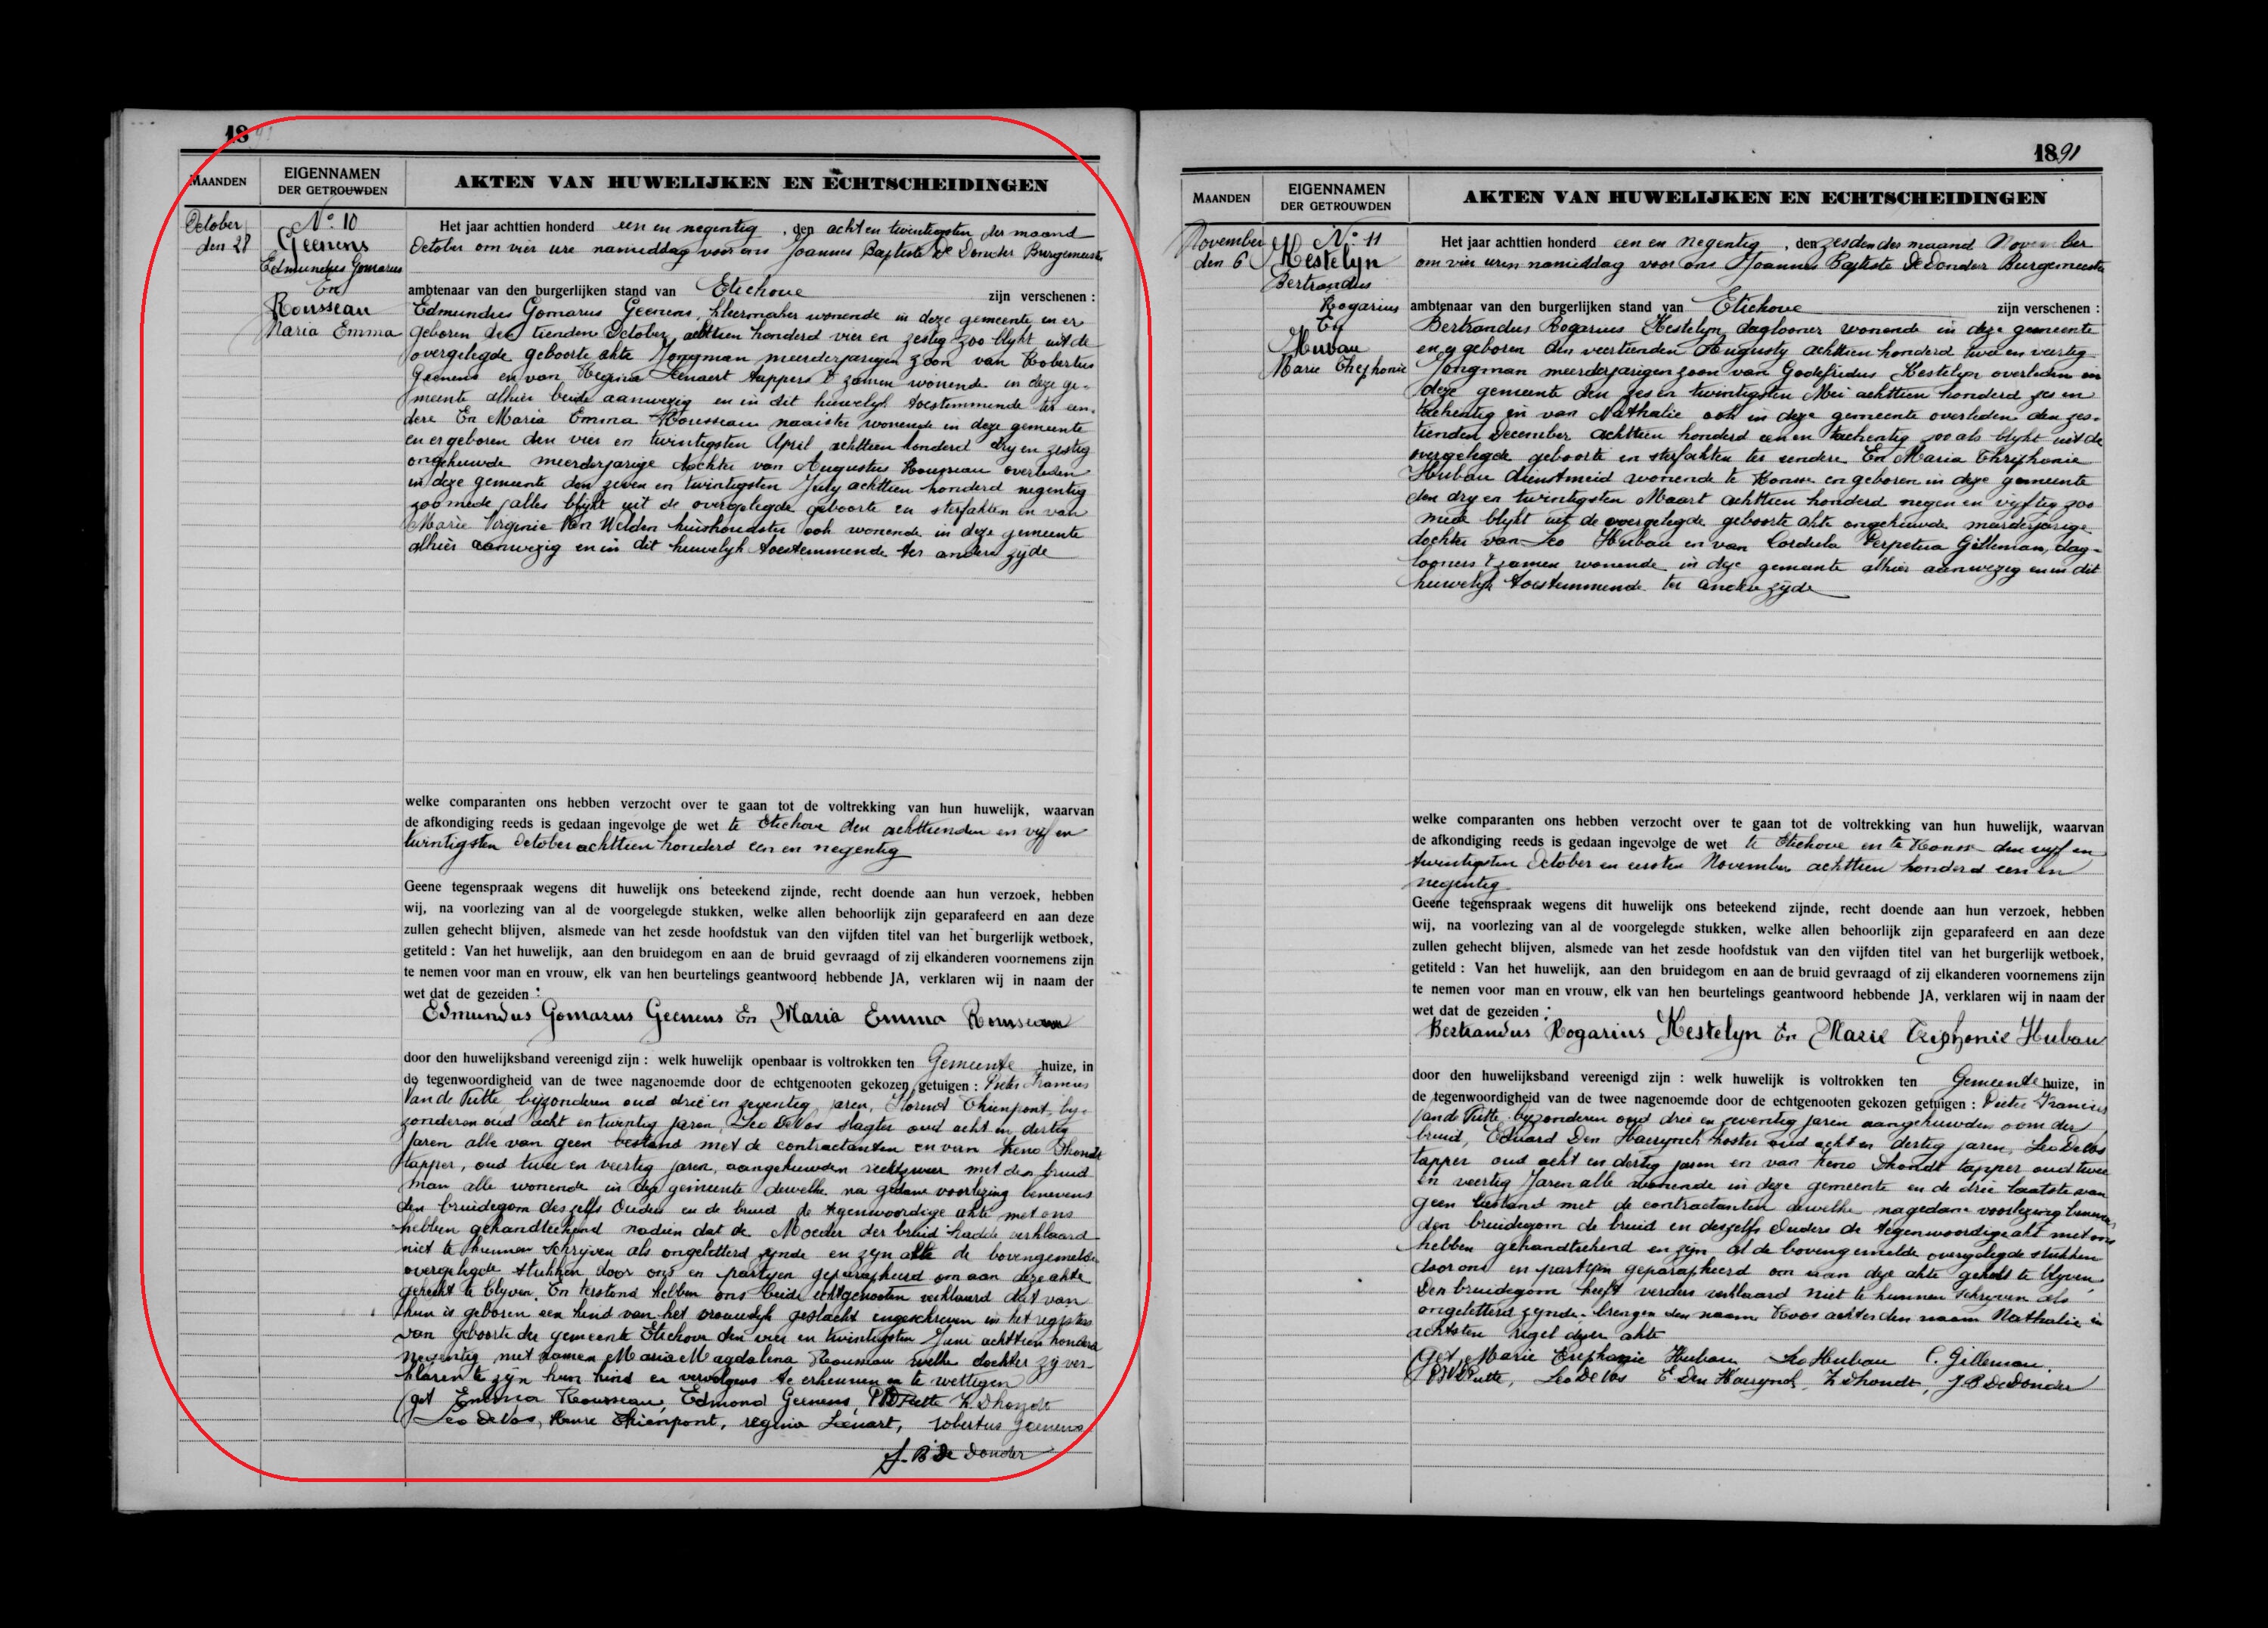 1891
MAANDEN
EIGENNAMEN
DER GETROUWDEN
AKTEN VAN HUWELIJKEN EN ECHTSCHEIDINGEN
October
den 28
No 10
Geenens
Edmundus Gomarus
En
Rousseau
Maria Emma
Het jaar achttien honderd een en negentig, den acht en twintigsten der maand
October om vier ure namiddag voor ons Joannes Baptiste De Donder Burgemeester
ambtenaar van den burgerlijken stand van Etichove zijn verschenen :
Edmundus Gomarus Geenens, kleermaker wonende in deze gemeente en er
geboren den tienden October achttien honderd vier en zestig zoo blykt uit de
overgelegde geboorte akte Jongman meerderjarigen zoon van Robertus
Geenens en van Regina Lenaert tappers t' zamen wonende in deze ge-
meente alhier beide aanwezig en in dit huwelyk toestemmende ter een-
dere En Maria Emma Rousseau naaister wonende in deze gemeente
en er geboren den vier en twintigsten April achttien honderd dry en zestig
ongehuwde meerderjarige dochter van Augustus Rousseau overleden
in deze gemeente den zeven en twintigsten July achttien honderd negentig
zoo mede alles blykt uit de overgelegde geboorte en sterfakten en van
Marie Virginie Van Welden huishoudster ook wonende in deze gemeente
alhier aanwezig en in dit huwelyk toestemmende ter andere zyde
welke comparanten ons hebben verzocht over te gaan tot de voltrekking van hun huwelijk, waarvan
de afkondiging reeds is gedaan ingevolge de wet te Etichove den achttienden en vyf en
twintigsten October achttien honderd een en negentig
Geene tegenspraak wegens dit huwelijk ons beteekend zijnde, recht doende aan hun verzoek, hebben
wij, na voorlezing van al de voorgelegde stukken, welke allen behoorlijk zijn geparafeerd en aan deze
zullen gehecht blijven, alsmede van het zesde hoofdstuk van den vijfden titel van het burgerlijk wetboek,
getiteld : Van het huwelijk, aan den bruidegom en aan de bruid gevraagd of zij elkanderen voornemens zijn
te nemen voor man en vrouw, elk van hen beurtelings geantwoord hebbende JA, verklaren wij in naam der
wet dat de gezeiden :
Edmundus Gomarus Geenens En Maria Emma Rousseau
door den huwelijksband vereenigd zijn : welk huwelijk openbaar is voltrokken ten Gemeente huize, in
de tegenwoordigheid van de twee nagenoemde door de echtgenooten gekozen getuigen : Pieter Francies
Van de Putte, byzonderen oud drie en zeventig jaren, Florent Thienpont, by-
zonderen oud acht en twintig jaren, Leo De Vos slagter oud acht en dertig
Jaren alle van geen bestand met de contractanten en van Zeno Dhondt
tapper, oud twee en veertig jaren, aangehuwden rechtsweer met den bruid
man alle wonende in deze gemeente dewelke na gedane voorlezing benevens
den bruidegom deszelfs Ouders en de bruid de tegenwoordige akte met ons
hebben gehandteekend nadien dat de Moeder der bruid hadde verklaard
niet te kunnen schryven als ongeletterd zynde en zyn alle de bovengemelde
overgelegde stukken door ons en partyen geparapheerd om aan deze akte
gehecht te blyven. En terstond hebben ons beide echtgenooten verklaard dat van
hun is geboren een kind van het vrouwelyk geslacht ingeschreven in het register
van geboorte der gemeente Etichove den vier en twintigsten Juni achttien honderd
negentig met namen Maria Magdalena Rousseau welke dochter zy ver-
klaren te zyn hun kind en vervolgens te erkennen en te wettigen
(get Emma Rousseau, Edmond Geenens, PVDPutte Z Dhondt
Leo De Vos, Thienpont, regina Lenart, robertus geenens
J. B De Donder
1891
MAANDEN
EIGENNAMEN
DER GETROUWDEN
AKTEN VAN HUWELIJKEN EN ECHTSCHEIDINGEN
November
den 6
No 11
Kestelyn
Bertrandus
Rogarius
En
Hubau
Marie Thephonie
Het jaar achttien honderd een en negentig, den zesden des maand November
om vier uren namiddag voor ons Joannes Baptiste De Donder Burgemeester
ambtenaar van den burgerlijken stand van Etichove zijn verschenen :
Bertrandus Rogarius Kestelyn, daglooner wonende in deze gemeente
en er geboren den veertienden Augusty achttien honderd twee en veertig
Jongman meerderjarigen zoon van Godefridus Kestelyn overleden in
deze gemeente den zes en twintigsten Mei achttien honderd zes en
tachentig en van Nathalie ook in deze gemeente overleden den zes-
tienden December achttien honderd een en tachentig zoo als blykt uit de
overgelegde geboorte en sterfakten ter eendere En Maria Thriphonie
Hubau dienstmeid wonende te Ronsse en geboren in deze gemeente
den dry en twintigsten Maart achttien honderd negen en vyftig zoo
mede blykt uit de overgelegde geboorte akte ongehuwde meerderjarige
dochter van Leo Hubau en van Cordula Perpetua Gilleman, dag-
looners t'zamen wonende in deze gemeente alhier aanwezig en in dit
huwelyk toestemmende ter andere zyde
welke comparanten ons hebben verzocht over te gaan tot de voltrekking van hun huwelijk, waarvan
de afkondiging reeds is gedaan ingevolge de wet te Etichove en te Ronsse den vyf en
twintigsten October en eersten November achttien honderd een en
negentig
Geene tegenspraak wegens dit huwelijk ons beteekend zijnde, recht doende aan hun verzoek, hebben
wij, na voorlezing van al de voorgelegde stukken, welke allen behoorlijk zijn geparafeerd en aan deze
zullen gehecht blijven, alsmede van het zesde hoofdstuk van den vijfden titel van het burgerlijk wetboek,
getiteld : Van het huwelijk, aan den bruidegom en aan de bruid gevraagd of zij elkanderen voornemens zijn
te nemen voor man en vrouw, elk van hen beurtelings geantwoord hebbende JA, verklaren wij in naam der
wet dat de gezeiden :
Bertrandus Rogarius Kestelyn En Marie Triphonie Hubau
door den huwelijksband vereenigd zijn : welk huwelijk is voltrokken ten Gemeente huize, in
de tegenwoordigheid van de twee nagenoemde door de echtgenooten gekozen getuigen : Pieter Francies
Van de Putte, byzonderen oud drie en zeventig jaren aangehuwden oom der
bruid, Eduard Den Haerynck koster oud acht en dertig jaren, Leo De Vos
tapper oud acht en dertig jaren en van Zeno Dhondt tapper oud twee
en veertig Jaren alle wonende in deze gemeente en de drie laatste van
geen bestand met de contractanten dewelke na gedane voorlezing benevens
den bruidegom de bruid en deszelfs Ouders de tegenwoordige akt met ons
hebben gehandteekend en zyn al de bovengemelde overgelegde stukken
door ons en partyen geparapheerd om aan deze akte gehecht te blyven.
Den bruidegom heeft verders verklaard niet te kunnen schryven als
ongeletterd zynde. brengen den naam Roos achter den naam Nathalie in
achtsten regel dezer akte
(Get, Marie Trephonie Hubau Leo Hubau C. Gilleman.
PVDPutte, Leo De Vos E Den Haerynck, Z Dhondt, J B De Donder